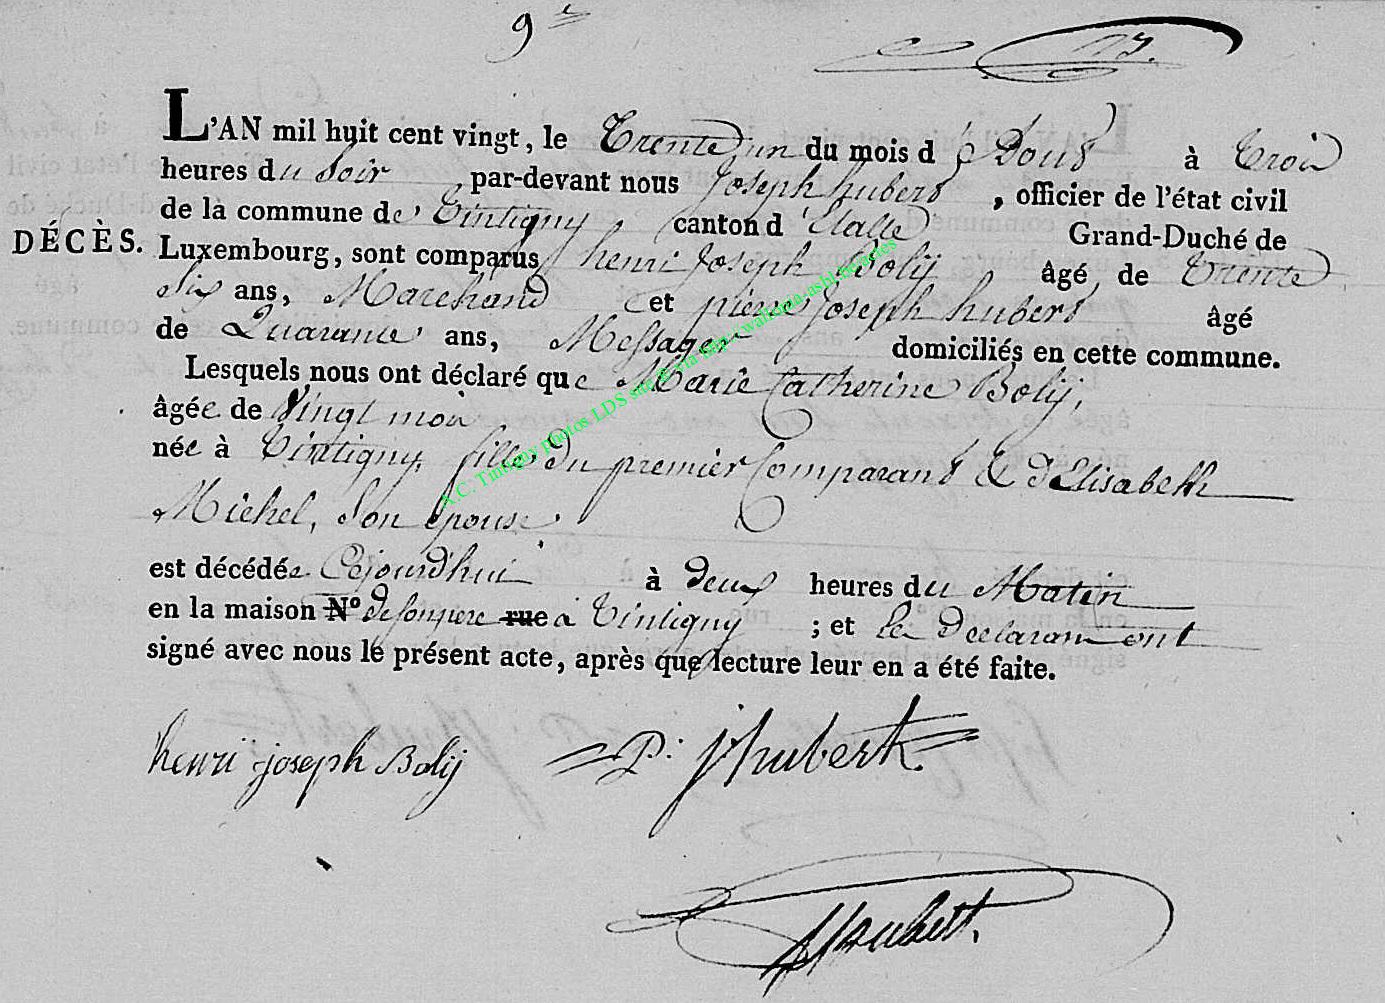 9
L'AN mil huit cent vingt, le Trente un du mois d'Aout à Trois
heures du Soir par-devant nous Joseph hubert, officier de l'état civil
de la commune de Tintigny canton d'Etalle Grand-Duché de
DÉCÈS. Luxembourg, sont comparus henri Joseph Bolij âgé de Trente
Six ans, Marchand et pierre Joseph hubert âgé
de Quarante ans, Messager domiciliés en cette commune.
Lesquels nous ont déclaré que Marie Catherine Bolij,
âgée de Vingt mois
née à Tintigny, fille du premier Comparant & d'Elisabeth
Michel, Son épouse
est décédée Cejourd'hui à deux heures du Matin
en la maison N° de son pere rue à Tintigny ; et les Declarans ont
signé avec nous le présent acte, après que lecture leur en a été faite.
henri joseph Bolij P. j hubert
J Hubert.
A.C. Tintigny photos LDS site & via http://wallonia-asbl.be/actes